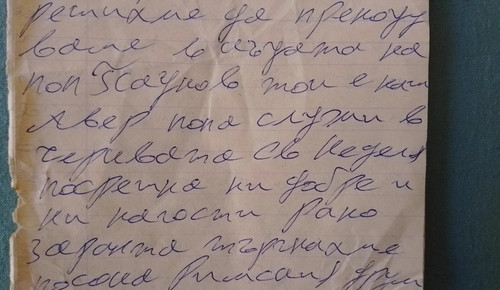 решихме да пренощу
ваме в къщата на
поп Паунов той е наш
Авер попа служи в
черквата Св Неделя
посрещна ни добре и
ни нагости рано
заранта тръгнахме
посока Римския друм